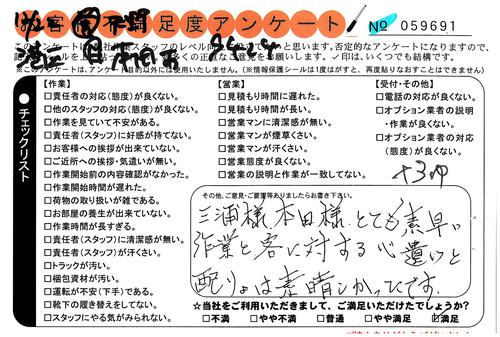 お客様不満足度アンケート
No 059691
※このアンケートは、アンケート目的以外には使用いたしません。(※情報保護シールは1度がはすと、再度貼りなおすことはできません)
チェックリスト
【作業】
□責任者の対応(態度)が良くない。
□他のスタッフの対応(態度)が良くない。
□作業を見ていて不安がある。
□責任者(スタッフ)に好感が持てない。
□お客様への挨拶が出来ていない。
□ご近所への挨拶・気遣いが無い。
□作業開始前の内容確認がなかった。
□作業開始時間が遅れた。
□荷物の取り扱いが雑である。
□お部屋の養生が出来ていない。
□作業時間が長すぎる。
□責任者(スタッフ)に清潔感が無い。
□責任者(スタッフ)が汗くさい。
□トラックが汚い。
□梱包資材が汚い。
□運転が不安(下手)である。
□靴下の履き替えをしてない。
□スタッフにやる気がみられない。
【営業】
□見積もり時間に遅れた。
□見積もり時間が長い。
□営業マンに清潔感が無い。
□営業マンが煙草くさい。
□営業マンが汗くさい。
□営業態度が良くない。
□営業の説明と作業が一致してない。
【受付・その他】
□電話の対応が良くない。
□オプション業者の説明
・作業が良くない。
□オプション業者の対応
(態度)が良くない。
その他、ご意見・ご要望等ありましたらお書き下さい。
三浦様、本田様、とても素早い
作業と客に対する心遣いと
配りょは素晴しかったです。
☆当社をご利用いただきまして、ご満足いただけたでしょうか?
□不満 □やや不満 □普通 □やや満足 ☑満足